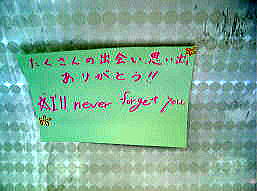 たくさんの出会い思い出
ありがとう!!
☆I'll never forget you